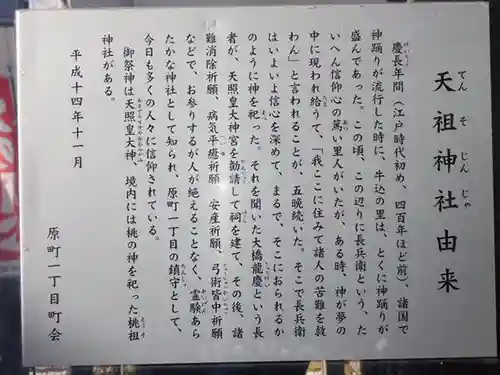 天祖神社由来
てんそじんじゃ
慶長年間（江戸時代初め、四百年ほど前）、諸国で
けいちょう
神踊りが流行した時に、牛込の里は、とくに神踊りが
盛んであった。この頃、この辺りに長兵衛という、た
いへん信仰心の篤い里人がいたが、ある時、神が夢の
中に現われ給うて、「我ここに住みて諸人の苦難を救
わん」と言われることが、五晩続いた。そこで長兵衛
はいよいよ信心を深めて、まるで、そこにおられるか
のように神を祀った。それを聞いた大橋龍慶という長
者が、天照皇大神宮を勧請して祠を建て、その後、諸
難消除祈願、病気平癒祈願、安産祈願、弓術皆中祈願
などで、お参りするが人が絶えることなく、霊験あら
たかな神社として知られ、原町一丁目の鎮守として、
今日も多くの人々に信仰されている。
御祭神は天照皇大神、境内には桃の神を祀った桃祖
神社がある。
平成十四年十一月
原町一丁目町会